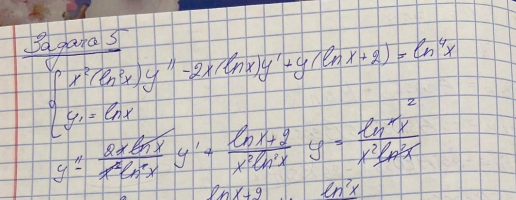 Задача 5
x²(ln²x)y'' - 2x(lnx)y' + y(lnx+2) = ln⁴x
y₁ = lnx
y'' - 2x lnx / x² ln²x y' + lnx+2 / x² ln²x y = ln⁴x / x² ln²x 2
lnx+2 ln²x